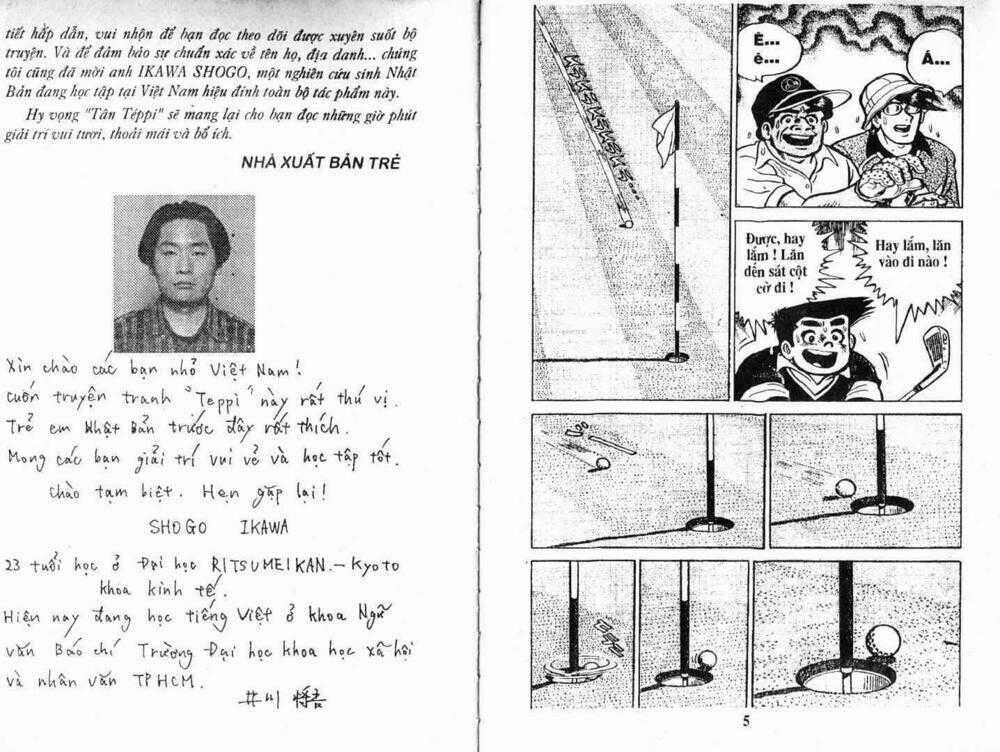 tiết hấp dẫn, vui nhộn để bạn đọc theo dõi được xuyên suốt bộ
truyện. Và để đảm bảo sự chuẩn xác về tên họ, địa danh... chúng
tôi cũng đã mời anh IKAWA SHOGO, một nghiên cứu sinh Nhật
Bản đang học tập tại Việt Nam hiệu đính toàn bộ tác phẩm này.
Hy vọng "Tân Téppi" sẽ mang lại cho bạn đọc những giờ phút
giải trí vui tươi, thoải mái và bổ ích.
NHÀ XUẤT BẢN TRẺ
Xin chào các bạn nhỏ Việt Nam!
Cuốn truyện tranh "Teppi" này rất thú vị.
Trẻ em Nhật Bản trước đây rất thích.
Mong các bạn giải trí vui vẻ và học tập tốt.
Chào tạm biệt. Hẹn gặp lại!
SHOGO IKAWA
23 tuổi học ở Đại học RITSUMEIKAN.-Kyoto
khoa kinh tế.
Hiện nay đang học tiếng Việt ở khoa Ngữ
văn Báo chí Trường Đại học khoa học xã hội
và nhân văn TPHCM.
井川 将吾
Ê...
ê...
Á...
Được, hay
lắm ! Lăn
đến sát cột
cờ đi !
Hay lắm, lăn
vào đi nào !
5